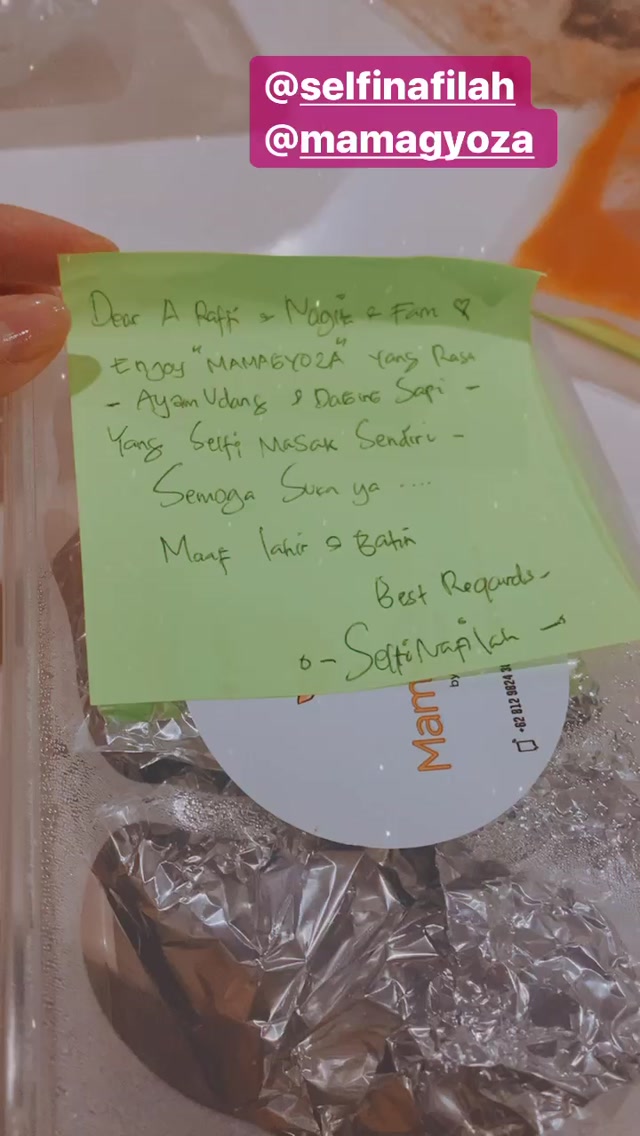 @selfinafilah
@mamagyoza
Dear A Raffi & Nagita & Fam ♡
Enjoy "MAMAGYOZA" Yang Rasa
- Ayam Udang & Daging Sapi -
Yang Selfi Masak Sendiri -
Semoga Suka ya ....
Maaf lahir & Batin
Best Regards -
- Selfi Nafilah -
Mam
by
+62 812 9824 3